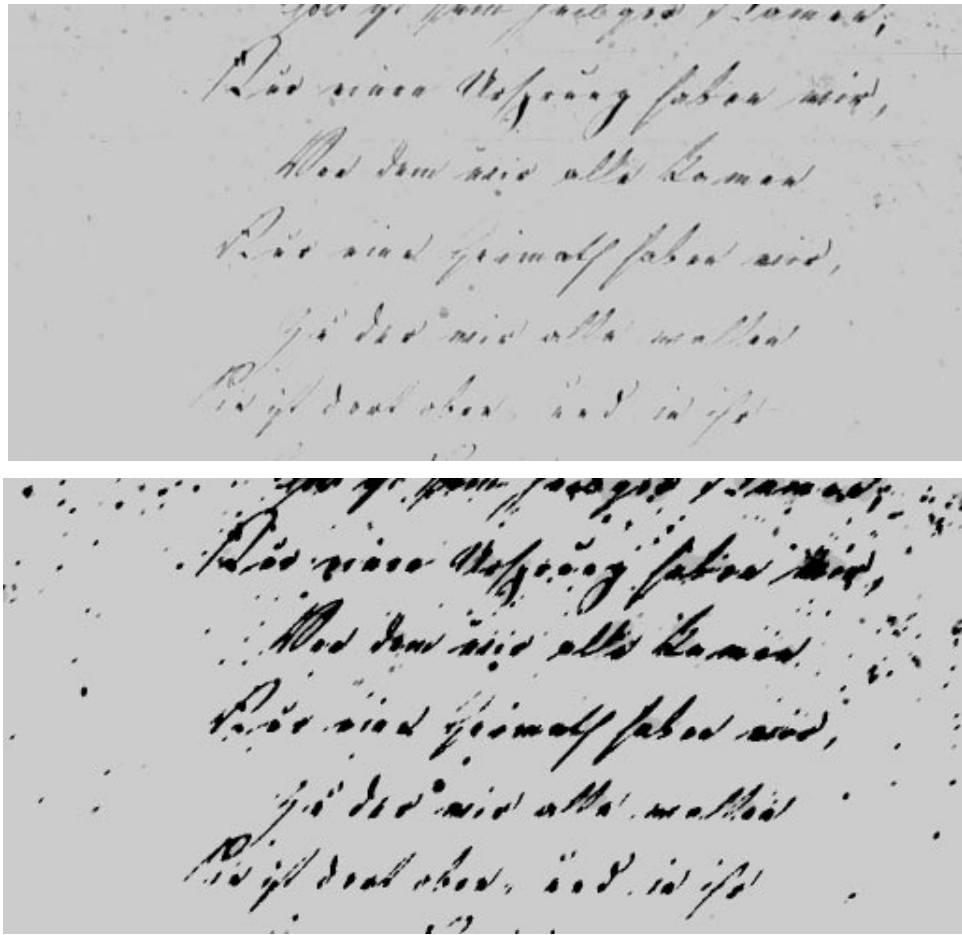 Nur einen Ursprung haben wir,
Von dem wir alle kamen
Nur eine Heimath haben wir,
Zu der wir alle wallen
Sie ist dort oben, und in ihr
Nur einen Ursprung haben wir,
Von dem wir alle kamen
Nur eine Heimath haben wir,
Zu der wir alle wallen
Sie ist dort oben, und in ihr